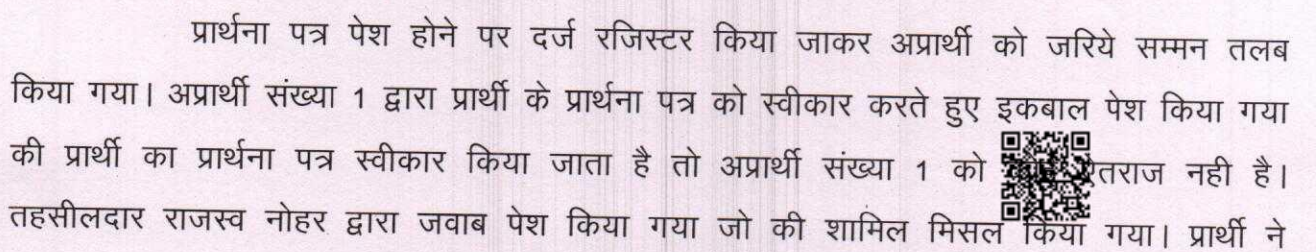 प्रार्थना पत्र पेश होने पर दर्ज रजिस्टर किया जाकर अप्रार्थी को जरिये सम्मन तलब
किया गया। अप्रार्थी संख्या 1 द्वारा प्रार्थी के प्रार्थना पत्र को स्वीकार करते हुए इकबाल पेश किया गया
की प्रार्थी का प्रार्थना पत्र स्वीकार किया जाता है तो अप्रार्थी संख्या 1 को नही है।
तहसीलदार राजस्व नोहर द्वारा जवाब पेश किया गया जो की शामिल मिसल किया गया। प्रार्थी ने